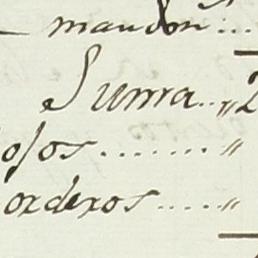 mandón...
Suma..„2
ojos.......„
orderos.....„